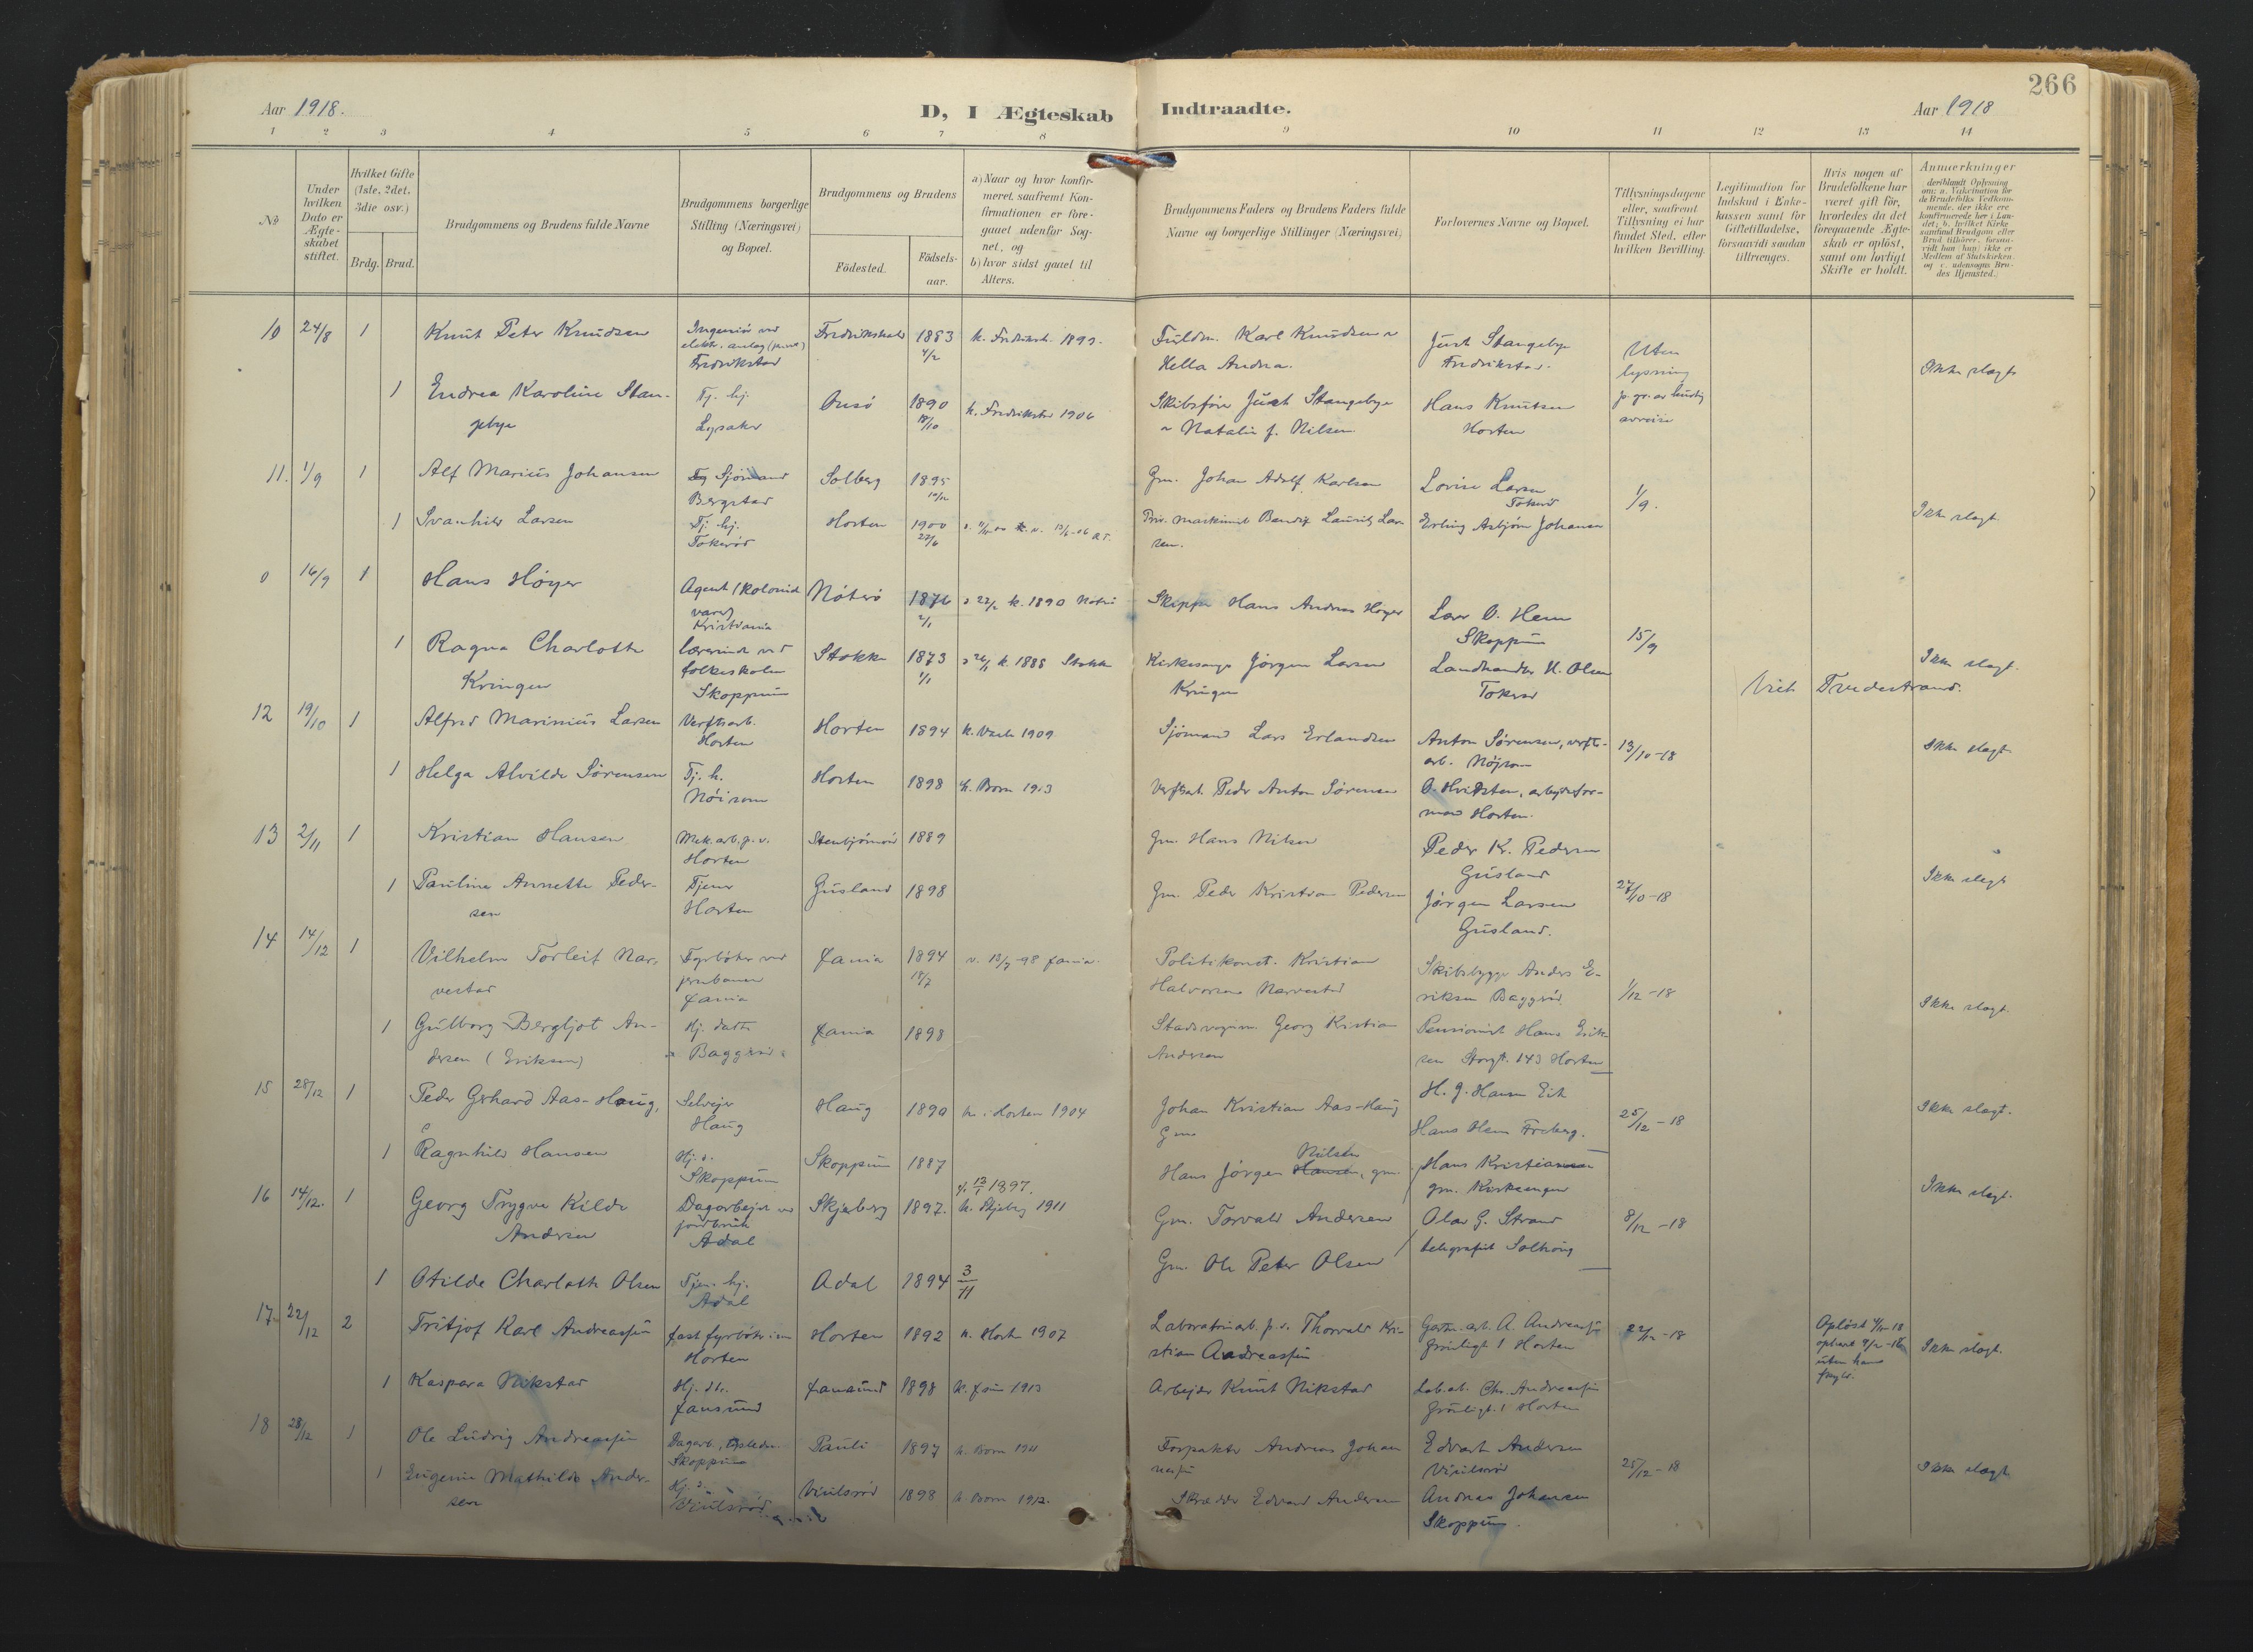 266
Aar 1918.
D, I Ægteskab Indtraadte.
Aar 1918
1 2 3 4 5 6 7 8 9 10 11 12 13 14
No
Under hvilken Dato er Ægteskabet stiftet.
Hvilket Gifte (1ste, 2det, 3die osv.)
Brdg. Brud.
Brudgommens og Brudens fulde Navne
Brudgommens borgerlige Stilling (Næringsvei) og Bopæl.
Brudgommens og Brudens
Födested.
Födsels-aar.
a) Naar og hvor konfirmeret, saafremt Konfirmationen er foregaaet udenfor Sognet, og
b) hvor sidst gaaet til Alters.
Brudgommens Faders og Brudens Faders fulde Navne og borgerlige Stillinger (Næringsvei)
Forlovernes Navne og Bopæl.
Tillysningsdagene eller, saafremt Tillysning ei har fundet Sted, efter hvilken Bevilling.
Legitimation for Indskud i Enkekassen samt for Giftetilladelse, forsaavidt saadan tiltrænges.
Hvis nogen af Brudefolkene har været gift för, hvorledes da det foregaaende Ægteskab er oplöst, samt om lovligt Skifte er holdt.
Anmerkninger
deriblandt Oplysning om: a. Vakcination for de Brudefolks Vedkommende, der ikke ere konfirmerede her i Landet; b. hvilket Kirkesamfund Brudgom eller Brud tilhörer, forsaavidt han (hun) ikke er Medlem af Statskirken, og c. udensogns Brudes Hjemsted.
10 24/8 1 Knut Peter Knudsen Ingeniör ved elektr. anlæg Fredrikstad Fredrikshald 1883 4/2 k. Fredriksh. 1898. Fuldm. Karl Knudsen Hella Andrea. Just Stangebye Fredrikstad. Uten lysning
Ikke slægt
1 Endrea Karoline Stangebye Tj. hj. Lysaker Onsö 1890 k. Fredrikstad 1906 Skibsförer Just Stangebye Natalie f. Nilsen Hans Knutsen Horten
11. 1/9 1 Alf Marius Johansen Sjömand Bergstad Solberg 1895 Gm. Johan Adolf Karlsen Lovise Larsen Tokerød 1/9. Ikke slægt.
1 Svanhild Larsen Tj. hj. Tokeröd Horten 1900 27/6 Lauritz Larsen. Erling Asbjörn Johansen
0 16/9 1 Hans Höyer Agent (kolonialvarer) Kristiania Nöterö 1876 2/1 k. 1890 Nöterö Skipper Hans Andreas Höyer Lars O. Hem Skoppum 15/9
Ikke slægt.
1 Ragna Charlotte Kringen lærerinde ved folkeskolen Skoppum Stokke 1873 1/1 k. 1888 Stokke Kirkesanger Jörgen Larsen Kringen Landhandler H. Olsen Tokeröd Viet Tvedestrand.
12 19/10 1 Alfred Marinius Larsen Verftsarb. Horten Horten 1894 k. Vaale 1909 Sjömand Lars Erlandsen Anton Sørensen, verftsarb. Nöjsom 13/10-18 Ikke slægt.
1 Helga Alvilde Sørensen Tj. h. Nöisom Horten 1898 k. Borre 1913 Verftsarb. Peder Anton Sörensen O. Hvidsten, arbejdsformand Horten.
13 2/11 1 Kristian Hansen Mek. arb. p. v. Horten Stenbjörnröd 1889 Gm. Hans Nilsen Peder Kr. Pedersen Gusland 27/10-18 Ikke slægt
1 Pauline Annette Pedersen Tjener Horten Gusland 1898 Gm. Peder Kristian Pedersen Jørgen Larsen Gusland.
14 14/12 1 Vilhelm Torleif Narvestad Fyrböter ved jernbanen 1894 18/7 Politikonst. Kristian Halvorsen Narvestad Skibsbygger Anders Eriksen Baggeröd 1/12-18 Ikke slægt.
1 Gulborg Bergljot Andersen (Eriksen) Hj. datter Baggeröd 1898 Georg Kristian Andersen Pensionist Hans Eriksen Storgt. 143 Horten
15 28/12 1 Peder Gerhard Aas-Haug, Selvejer Haug Haug 1890 k. i Horten 1904 Johan Kristian Aas-Haug Gm. H. J. Hansen Eik Hans Hem Freberg. 25/12-18 Ikke slægt.
1 Ragnhild Hansen Hj. d. Skoppum Skoppum 1887 Hans Jörgen Hansen Nilsen, gm. Hans Kristiansen gm. Kirkesengen
16 14/12. 1 Georg Trygve Kilde Andersen Dagarbejder ved jordbruk Adal Skjeberg 1897. v. 13/1 1897. k. Skjeberg 1911 Gm. Torvald Andersen Olav G. Strand telegrafist 8/12-18 Ikke slægt.
1 Otilde Charlotte Olsen Tjen. hj. Adal Adal 1894 3/11 Gm. Ole Peter Olsen
17. 22/12 2 Fritjof Karl Andreassen fast fyrböter Horten Horten 1892 k. Horten 1907 Laboratoriearb. p. v. Thorvald Kristian Andreassen A. Andreassen Grönligt. 1 Horten 22/12-18 Oplöst Ikke slægt.
1 Kaspara Nikstad Hj. dtr. 1898 1913 Arbejder Knut Nikstad Lab.arb. Chr. Andreassen Grönligt. 1 Horten
18 28/12 1 Ole Ludvig Andreassen Dagarb. Skoppum Pauli 1897 k. Borre 1911 Forpakter Andreas Johannessen Edvart Andersen Viulsröd 25/12-18 Ikke slægt
1 Eugenie Mathilde Andersen Hj. d. Viulsröd Viulsröd 1898 k. Borre 1912. Skrædder Edvard Andersen Andreas Johansen Skoppum.